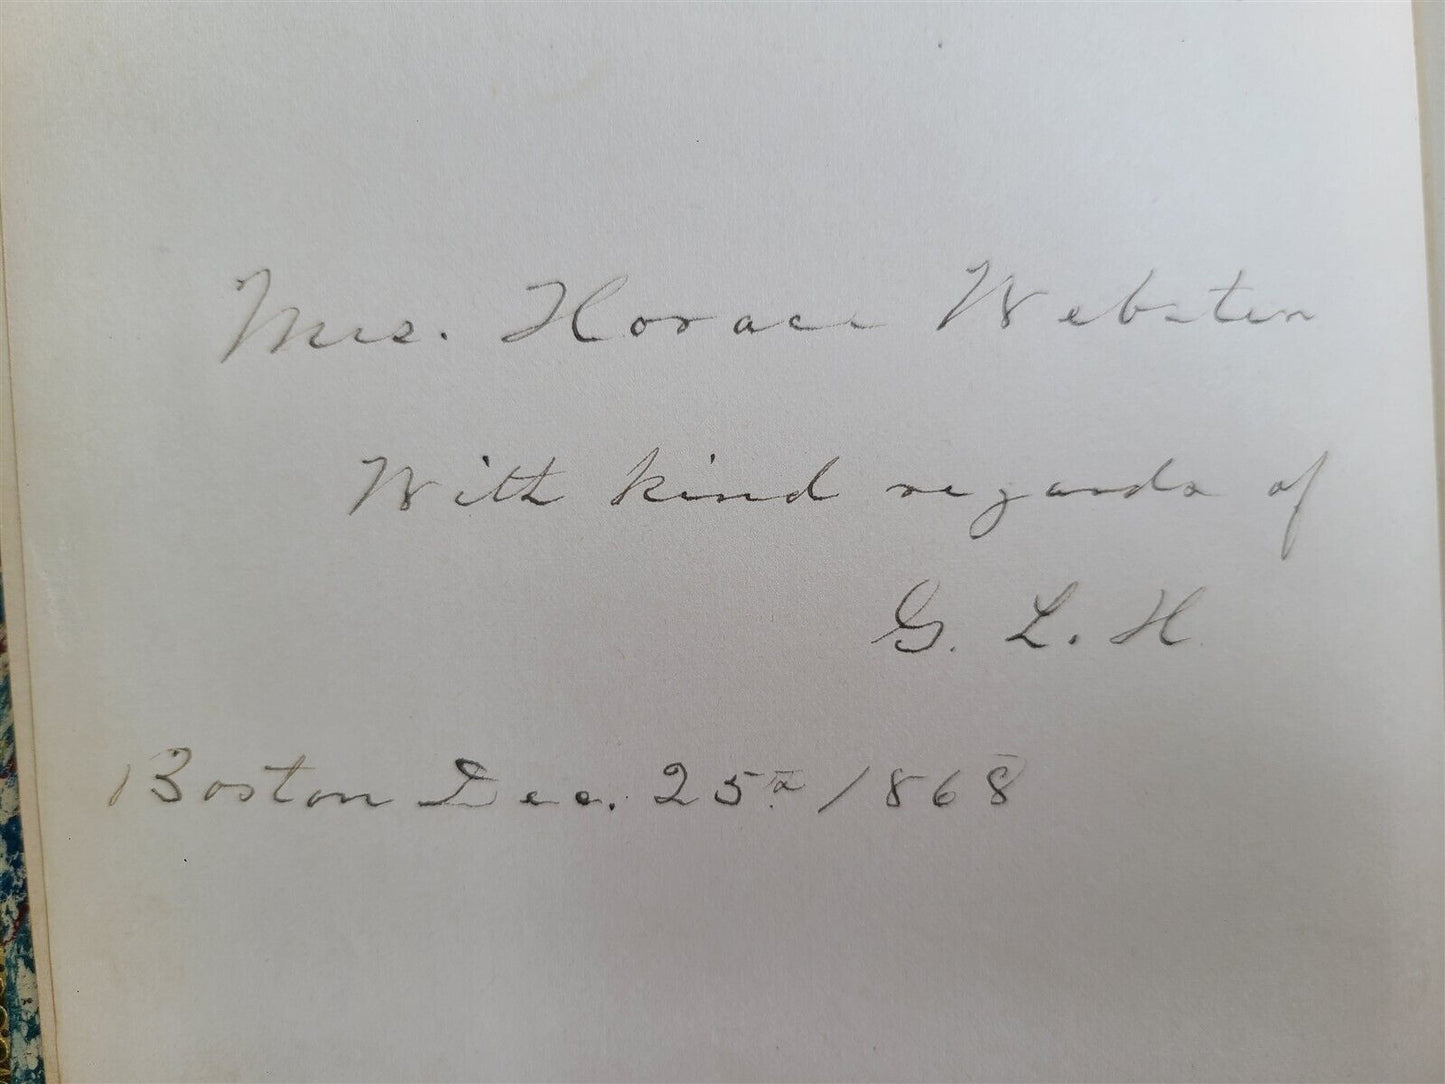 Mrs. Horace Webster
With kind regards of
G. L. H.
Boston Dec. 25th 1868